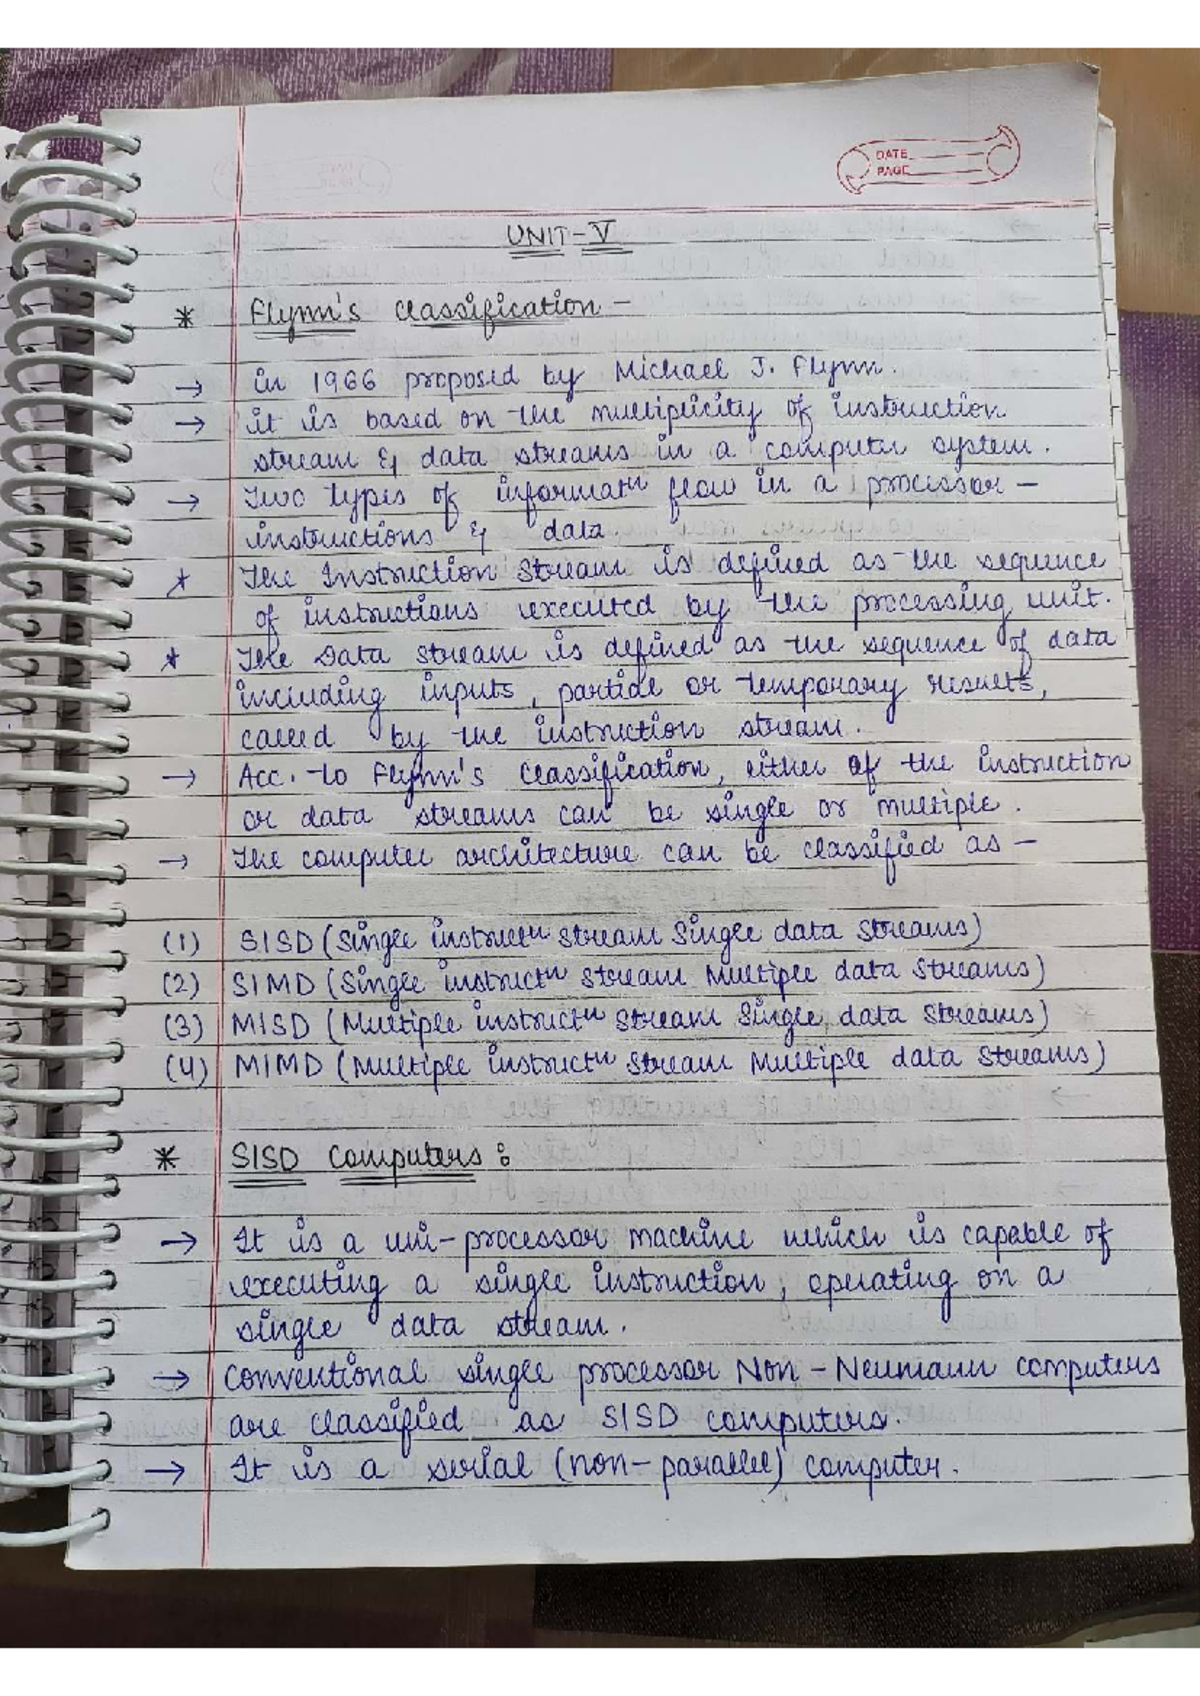 DATE
PAGE
UNIT-V
* Flynn's classification -
→ in 1966 proposed by Michael J. Flynn.
→ it is based on the multiplicity of instruction
stream & data streams in a computer system.
→ Two types of informatn flow in a processor -
instructions & data.
* The Instruction Stream is defined as the sequence
of instructions executed by the processing unit.
* The Data Stream is defined as the sequence of data
including inputs, partial or temporary results,
called by the instruction stream.
→ Acc. to Flynn's classification, either of the instruction
or data streams can be single or multiple.
→ The computer architecture can be classified as -
(1) SISD (Single instructn stream Single data streams)
(2) SIMD (Single instructn stream Multiple data streams)
(3) MISD (Multiple instructn stream Single data streams)
(4) MIMD (Multiple instructn stream Multiple data streams)
* SISD Computers :
→ It is a uni-processor machine which is capable of
executing a single instruction, operating on a
single data stream.
→ Conventional single processor Non-Neumann computers
are classified as SISD computers.
→ It is a serial (non-parallel) computer.